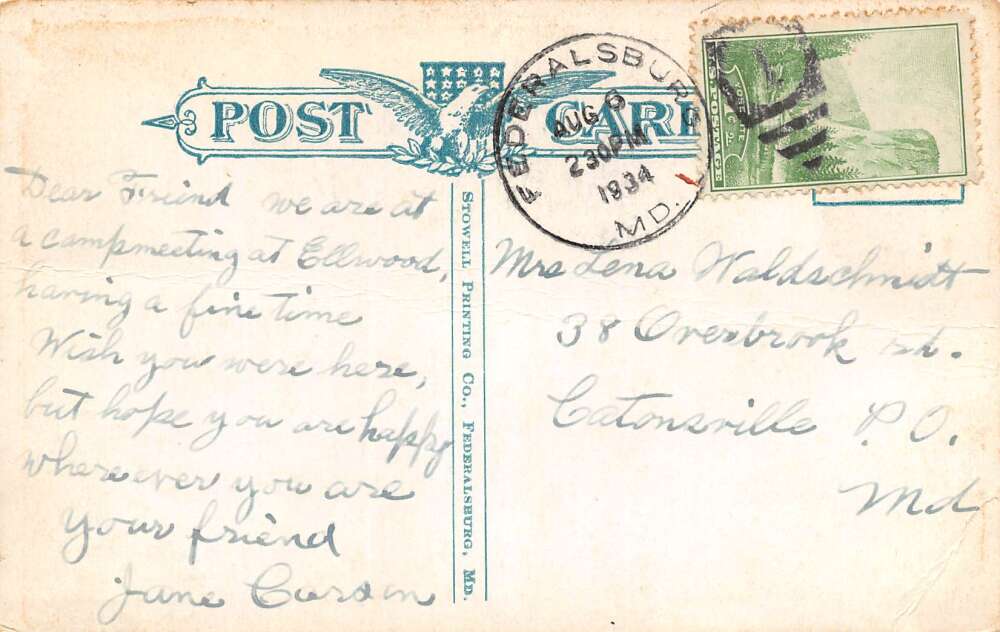 POST CARD
FEDERALSBURG
AUG 6
2 30 PM
1934
MD.
U.S. POSTAGE
Dear Friend we are at
a campmeeting at Ellwood,
having a fine time
Wish you were here,
but hope you are happy
where ever you are
your friend
Jane
STOWELL PRINTING CO., FEDERALSBURG, MD.
Mrs Lena Waldschmidt
38 Overbrook rd.
Catonsville P.O.
Md